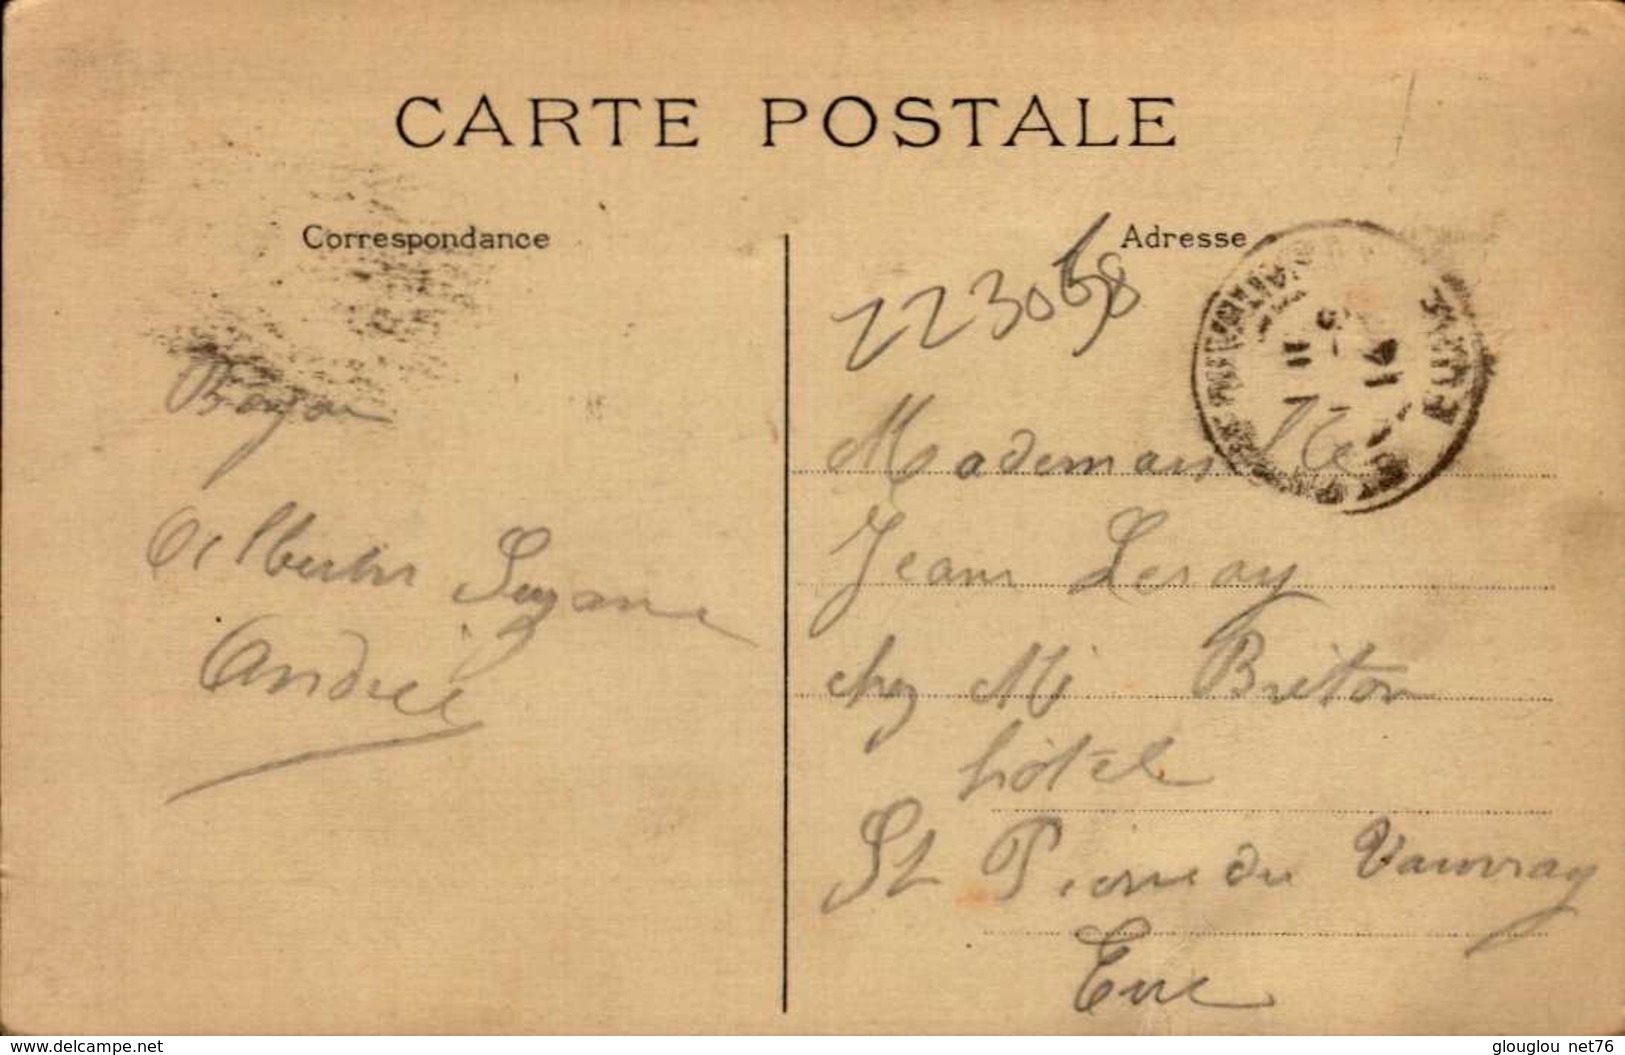 CARTE POSTALE
Correspondance
Adresse
223068
Mademoiselle
Jeanne Leroy
chez Mr Breton
hôtel
St Pierre du Vauvray
Eure
Suzanne
Andrée
EURE
www.delcampe.net
glouglou net76